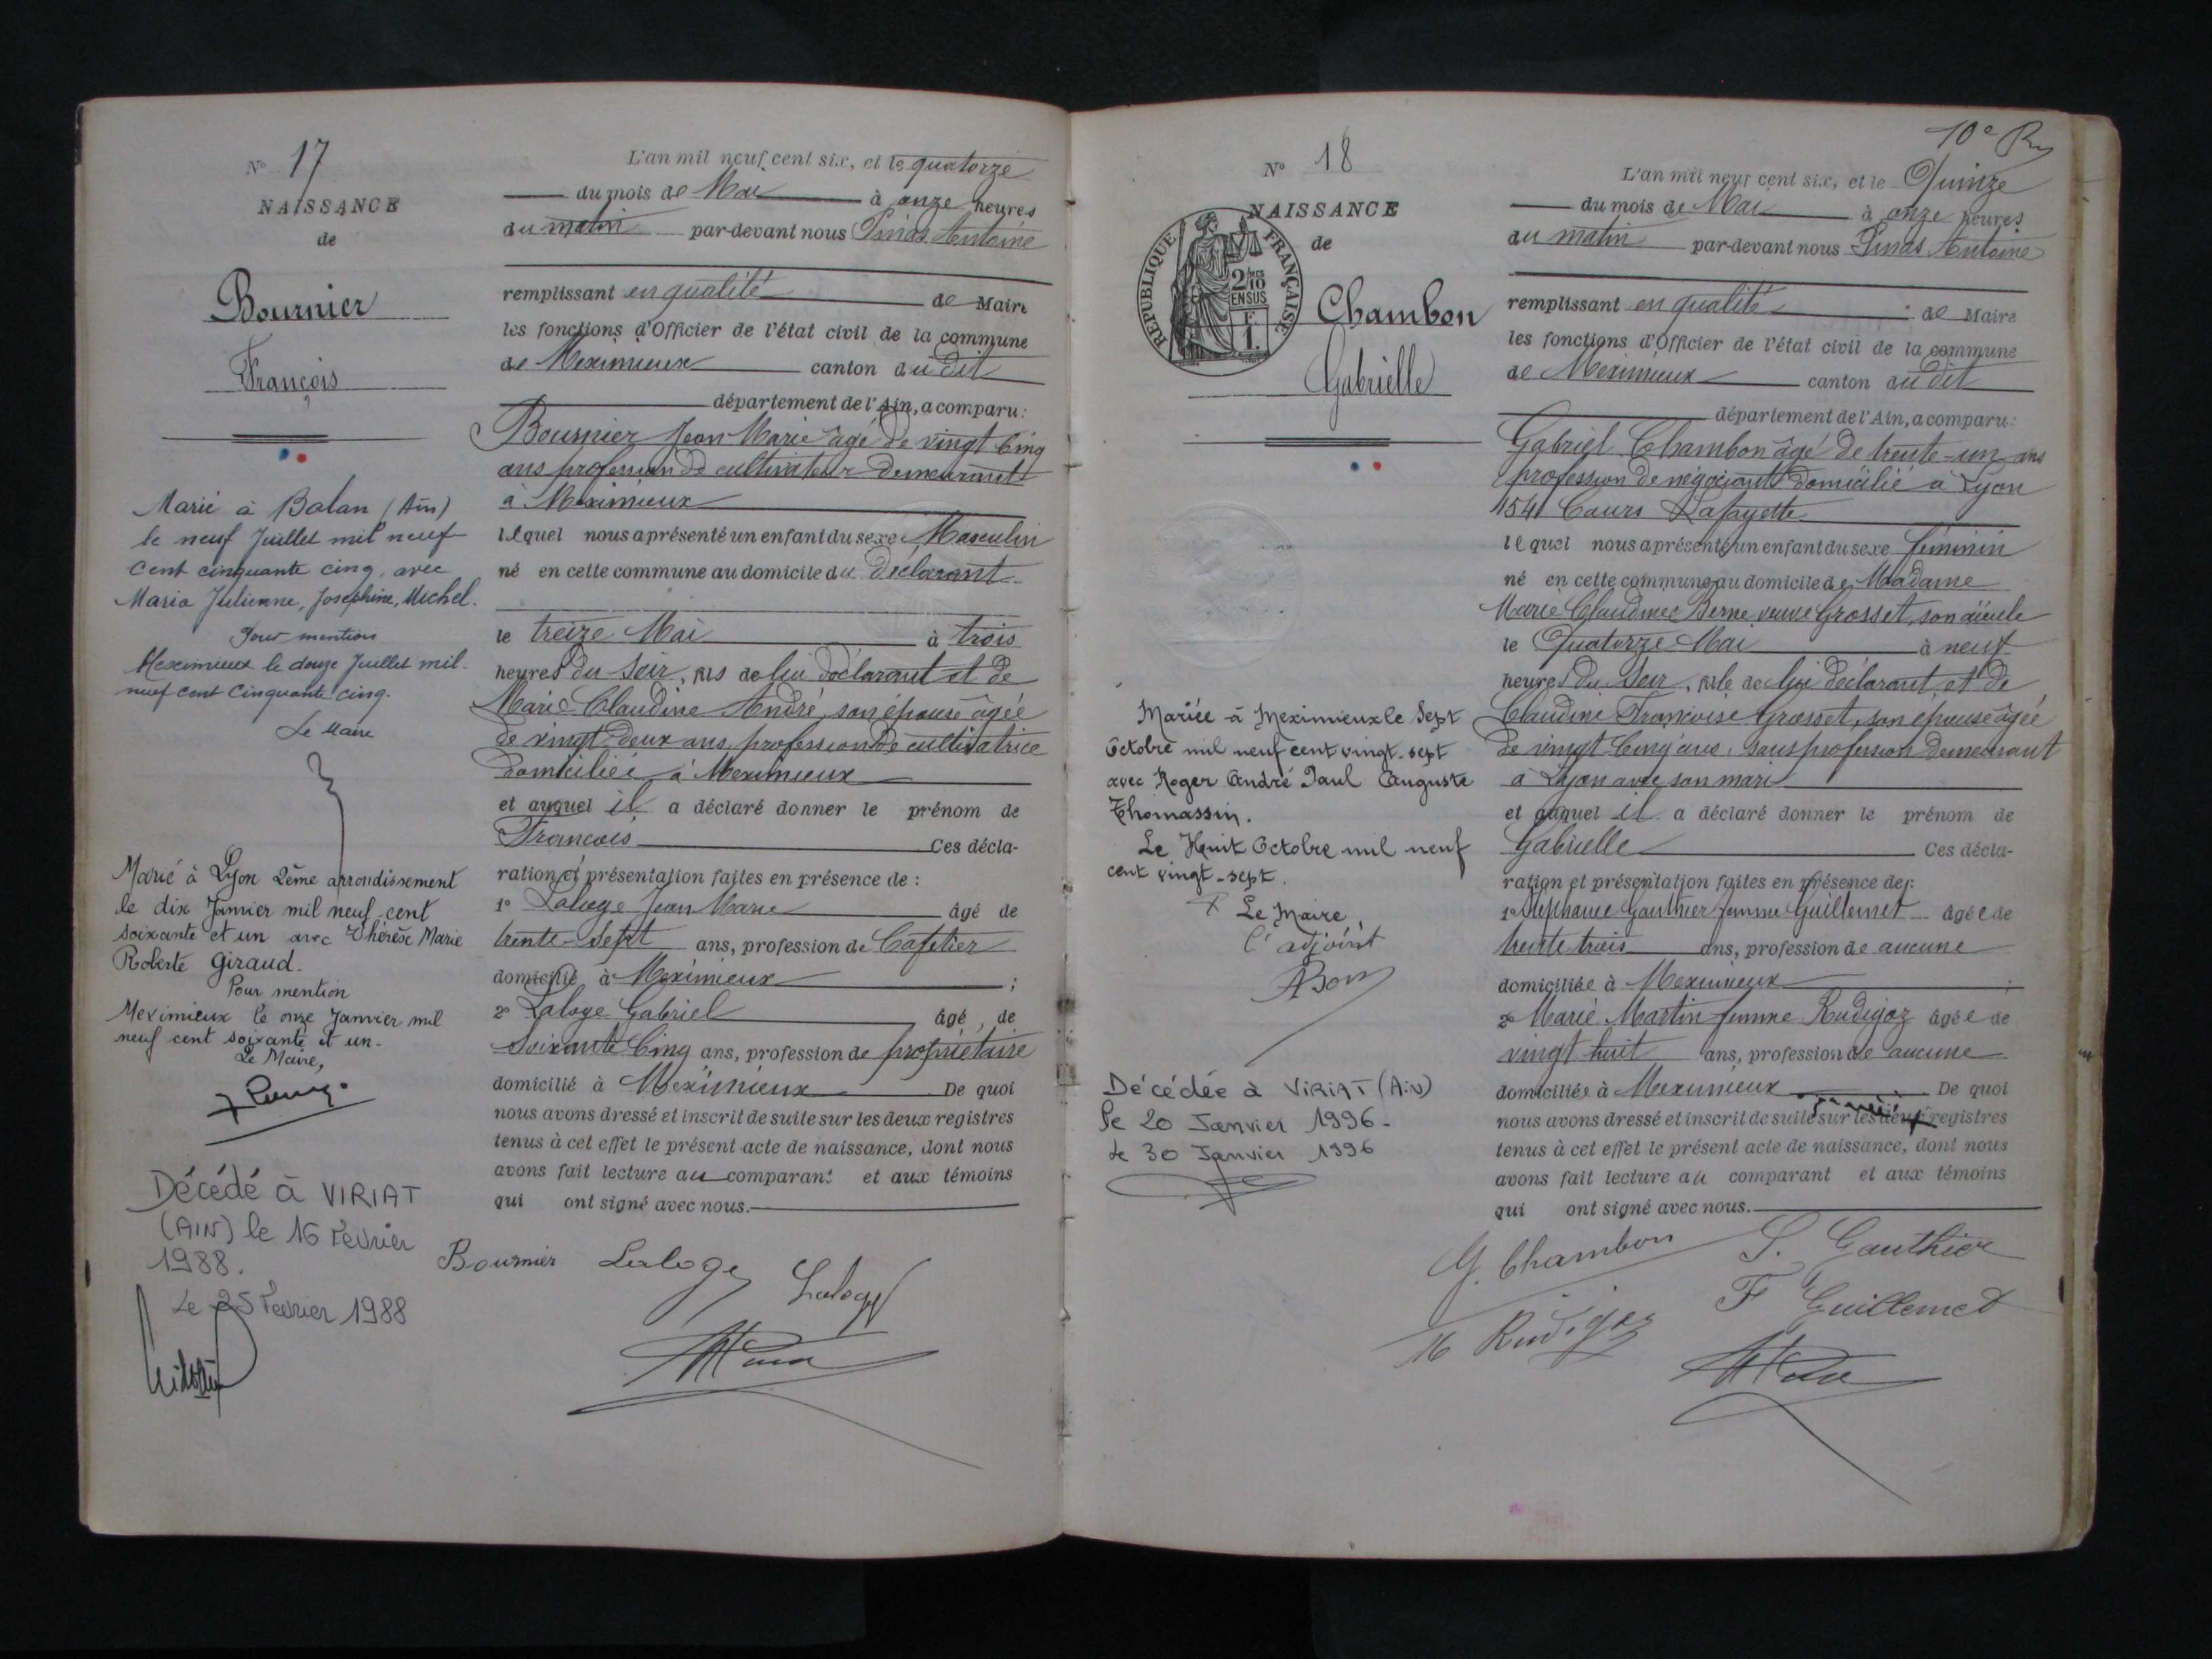 N° 17
NAISSANCE
de
Bournier
François
Marié à Balan (Ain)
le neuf Juillet mil neuf
cent cinquante cinq, avec
Maria Julienne, Joséphine, Michel.
Pour mention
Meximieux le douze Juillet mil-
neuf cent cinquante cinq.
Le Maire
Marié à Lyon 2ème arrondissement
le dix Janvier mil neuf cent
soixante et un avec Thérèse Marie
Roberte Giraud.
Pour mention
Meximieux le onze Janvier mil
neuf cent soixante et un-
Le Maire,
Décédé à VIRIAT
(AIN) le 16 Février
1988.
Le 25 Février 1988
L'an mil neuf cent six, et le quatorze
du mois de Mai à onze heures
du matin par-devant nous Pinas Antoine
remplissant en qualité de Maire
les fonctions d'Officier de l'état civil de la commune
de Meximieux canton du dit
département de l'Ain, a comparu:
Bournier Jean Marie âgé de vingt Cinq
ans profession de cultivateur demeurant
à Meximieux
lequel nous a présenté un enfant du sexe Masculin
né en cette commune au domicile du déclarant
le treize Mai à trois
heures du Soir, fils de lui déclarant et de
Marie Claudine André, son épouse âgée
de vingt-deux ans, profession de cultivatrice
domiciliée à Meximieux
et auquel il a déclaré donner le prénom de
François Ces décla-
ration et présentation faites en présence de :
1° Laloge Jean Marie âgé de
trente-sept ans, profession de Cafetier
domicilié à Meximieux ;
2° Laloge Gabriel âgé de
Soixante Cinq ans, profession de propriétaire
domicilié à Meximieux De quoi
nous avons dressé et inscrit de suite sur les deux registres
tenus à cet effet le présent acte de naissance, dont nous
avons fait lecture au comparant et aux témoins
qui ont signé avec nous.
Bournier Laloge Laloge
10e
N° 18
NAISSANCE
de
REPUBLIQUE FRANÇAISE
2/10 EN SUS
1.
Chambon
Gabrielle
Mariée à Meximieux le Sept
Octobre mil neuf cent vingt-sept
avec Roger André Paul Auguste
Thomassin.
Le Huit Octobre mil neuf
cent vingt-sept.
Le Maire,
l'adjoint
Décédée à VIRIAT (Ain)
le 20 Janvier 1996-
Le 30 Janvier 1996
L'an mil neuf cent six, et le Quinze
du mois de Mai à onze heures
du matin par-devant nous Pinas Antoine
remplissant en qualité de Maire
les fonctions d'Officier de l'état civil de la commune
de Meximieux canton du dit
département de l'Ain, a comparu:
Gabriel Chambon âgé de trente-un ans
profession de négociant domicilié à Lyon
154 Cours Lafayette
lequel nous a présenté un enfant du sexe féminin
né en cette commune au domicile de Madame
Marie Claudine Berne veuve Grosset, son aïeule
le Quatorze Mai à neuf
heures du Soir, fille de lui déclarant et de
Claudine Françoise Grosset, son épouse âgée
de vingt Cinq ans, sans profession demeurant
à Lyon avec son mari
et auquel il a déclaré donner le prénom de
Gabrielle Ces décla-
ration et présentation faites en présence de:
1° Stéphanie Gauthier femme Guillemet âgée de
trente trois ans, profession de aucune
domiciliée à Meximieux ;
2° Marie Martin femme Rudigoz âgée de
vingt huit ans, profession de aucune
domiciliée à Meximieux De quoi
nous avons dressé et inscrit de suite sur les deux registres
tenus à cet effet le présent acte de naissance, dont nous
avons fait lecture au comparant et aux témoins
qui ont signé avec nous.
G. Chambon S. Gauthier
F Guillemet
M Rudigoz